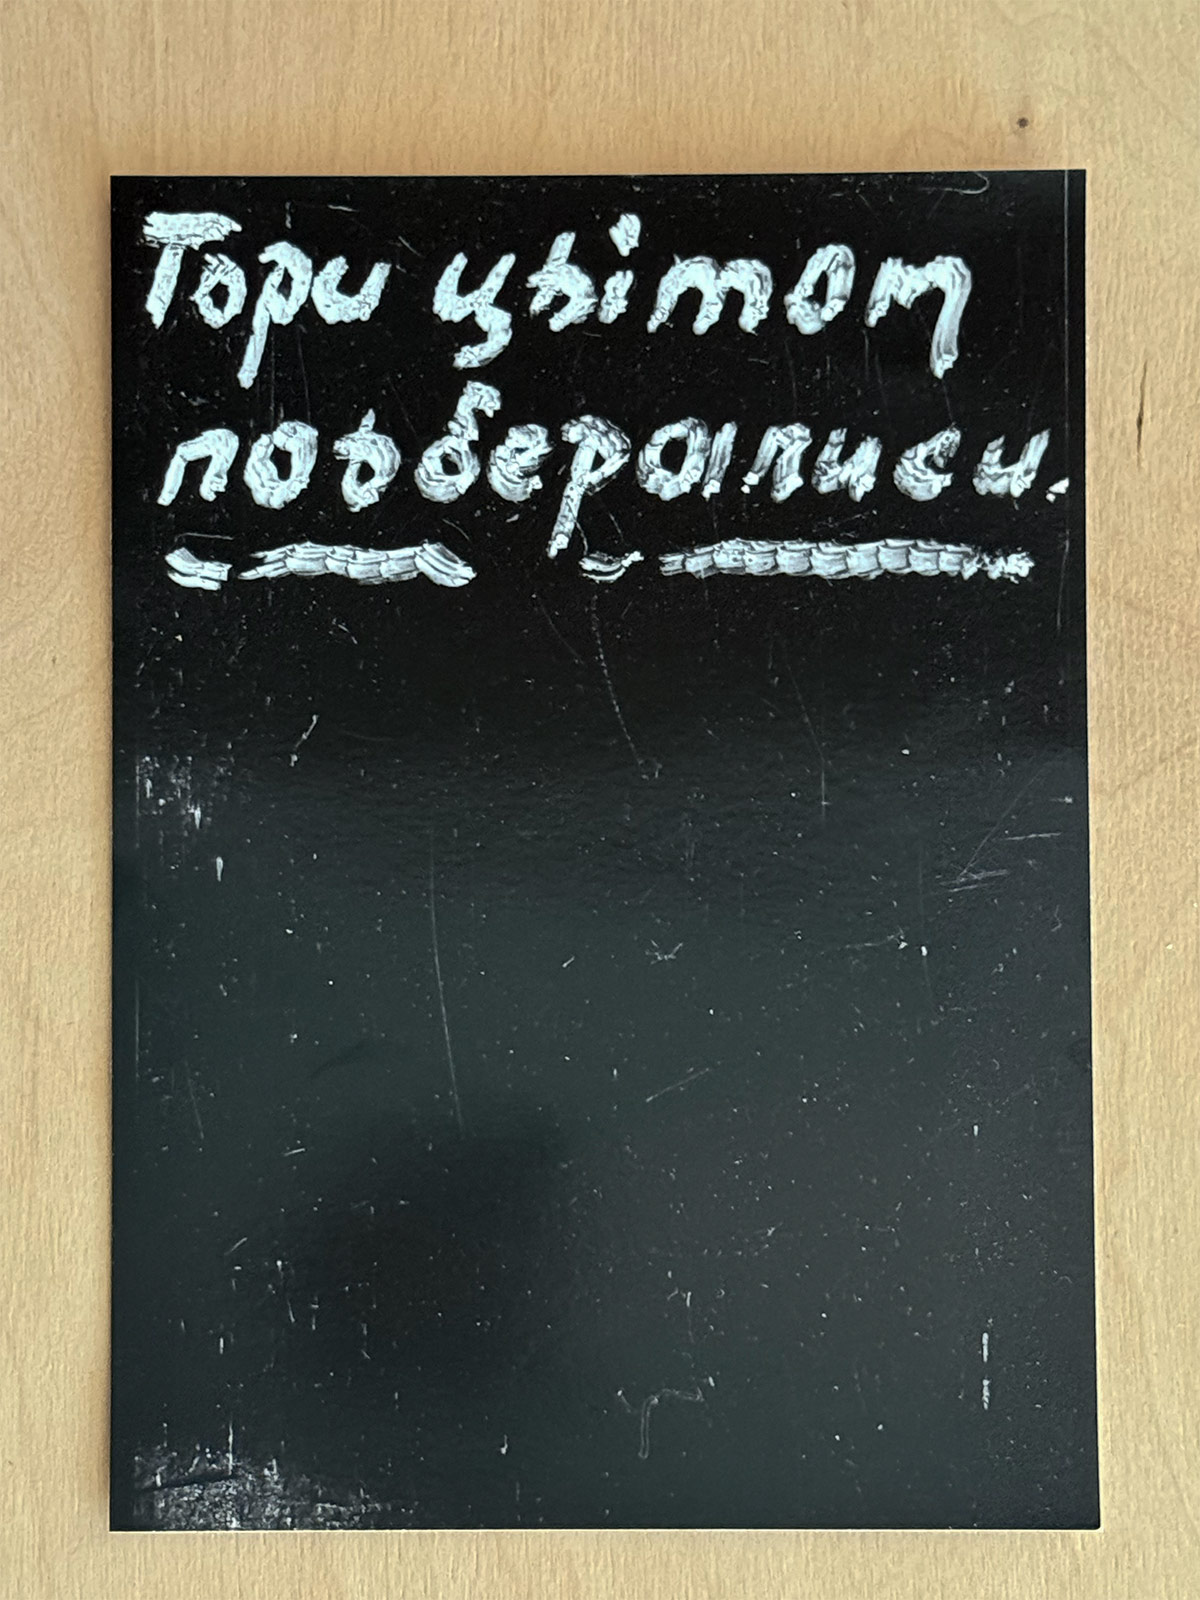 Гори цвітом
повбералиси.